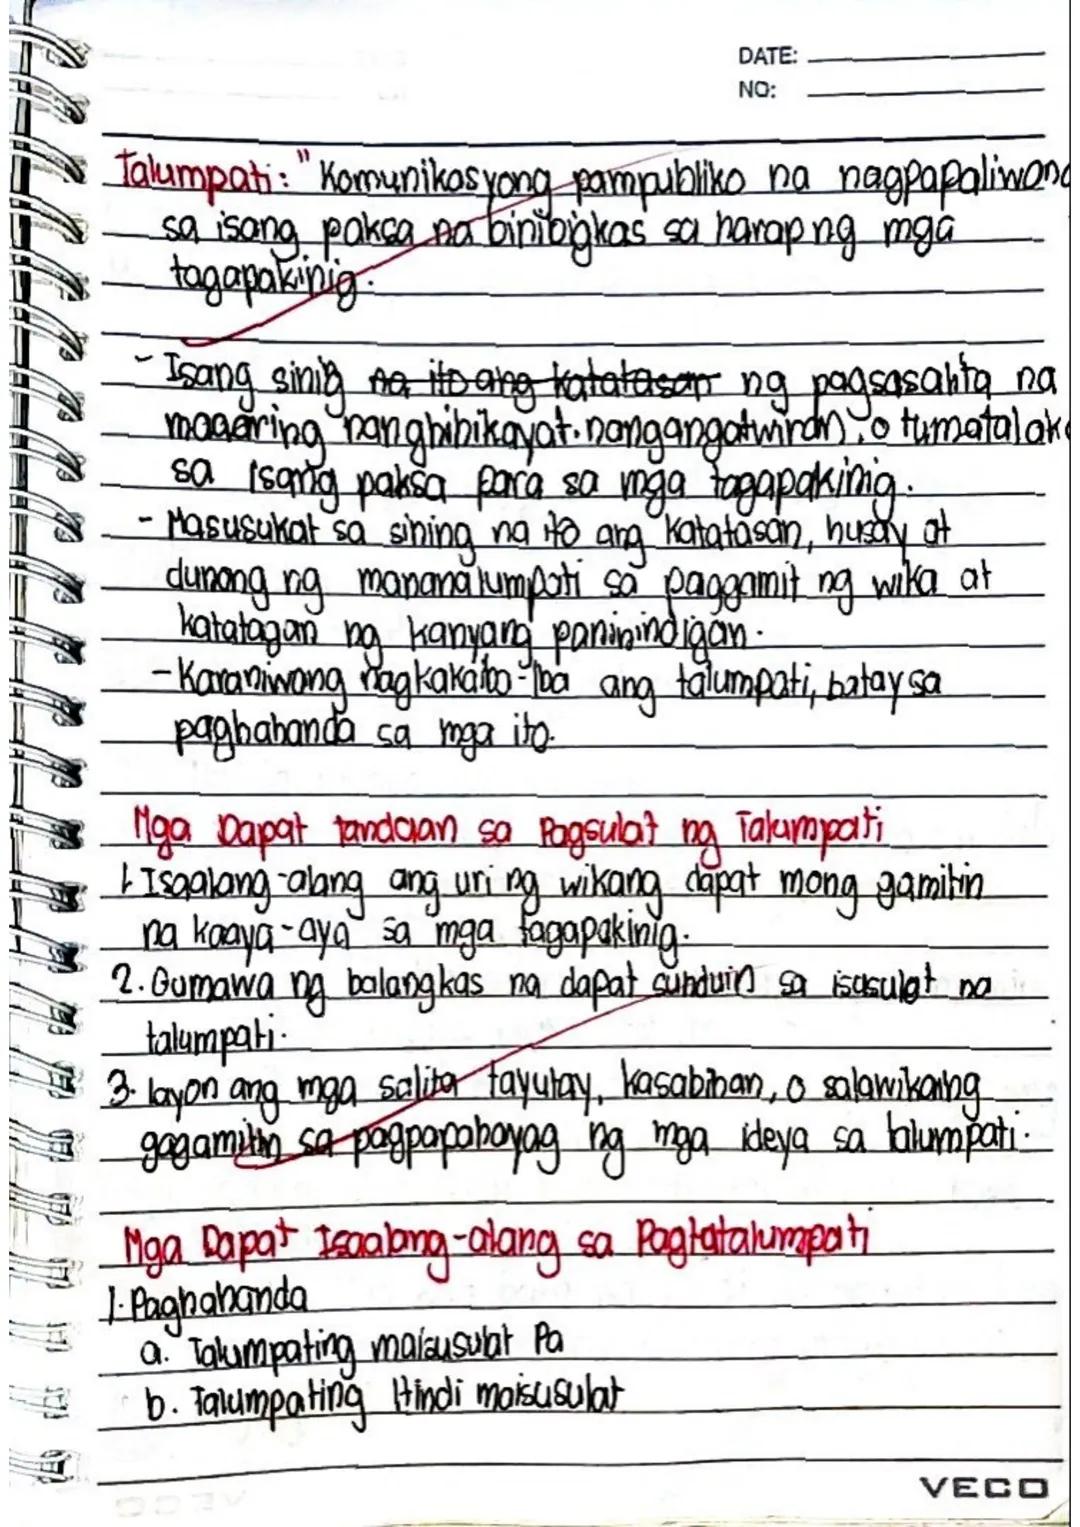 DATE:
NO:
Talumpati: " Komunikasyong pampubliko na nagpapaliwang
sa isang paksa na binibigkas sa harap ng mga
tagapakinig.
- Isang sinig na ito ang katatasan ng pagsasalita na
maaaring nanghihikayat. nangangatwiran, o tumatalak
sa isang paksa para sa mga tagapakinig.
- Masusukat sa sining na ito ang katatasan, husay at
dunong ng mananalumpati sa paggamit ng wika at
katatagan ng kanyang paninindigan.
- Karaniwang nagkakaiba-iba ang talumpati, batay sa
paghahanda sa mga ito.
Mga Dapat tandaan sa Pagsulat ng Talumpati
1. Isaalang-alang ang uri ng wikang dapat mong gamitin
na kaaya-aya sa mga tagapakinig.
2. Gumawa ng balangkas na dapat sunduin sa isusulat na
talumpati.
3. layon ang mga salita tayutay, kasabihan, o salawikaing
gagamitin sa pagpapahayag ng mga ideya sa talumpati.
Mga Dapat Isaalang-alang sa Pagtatalumpati
1. Paghahanda
a. Talumpating maisusulat Pa
b. Talumpating Hindi maisusulat
VECO